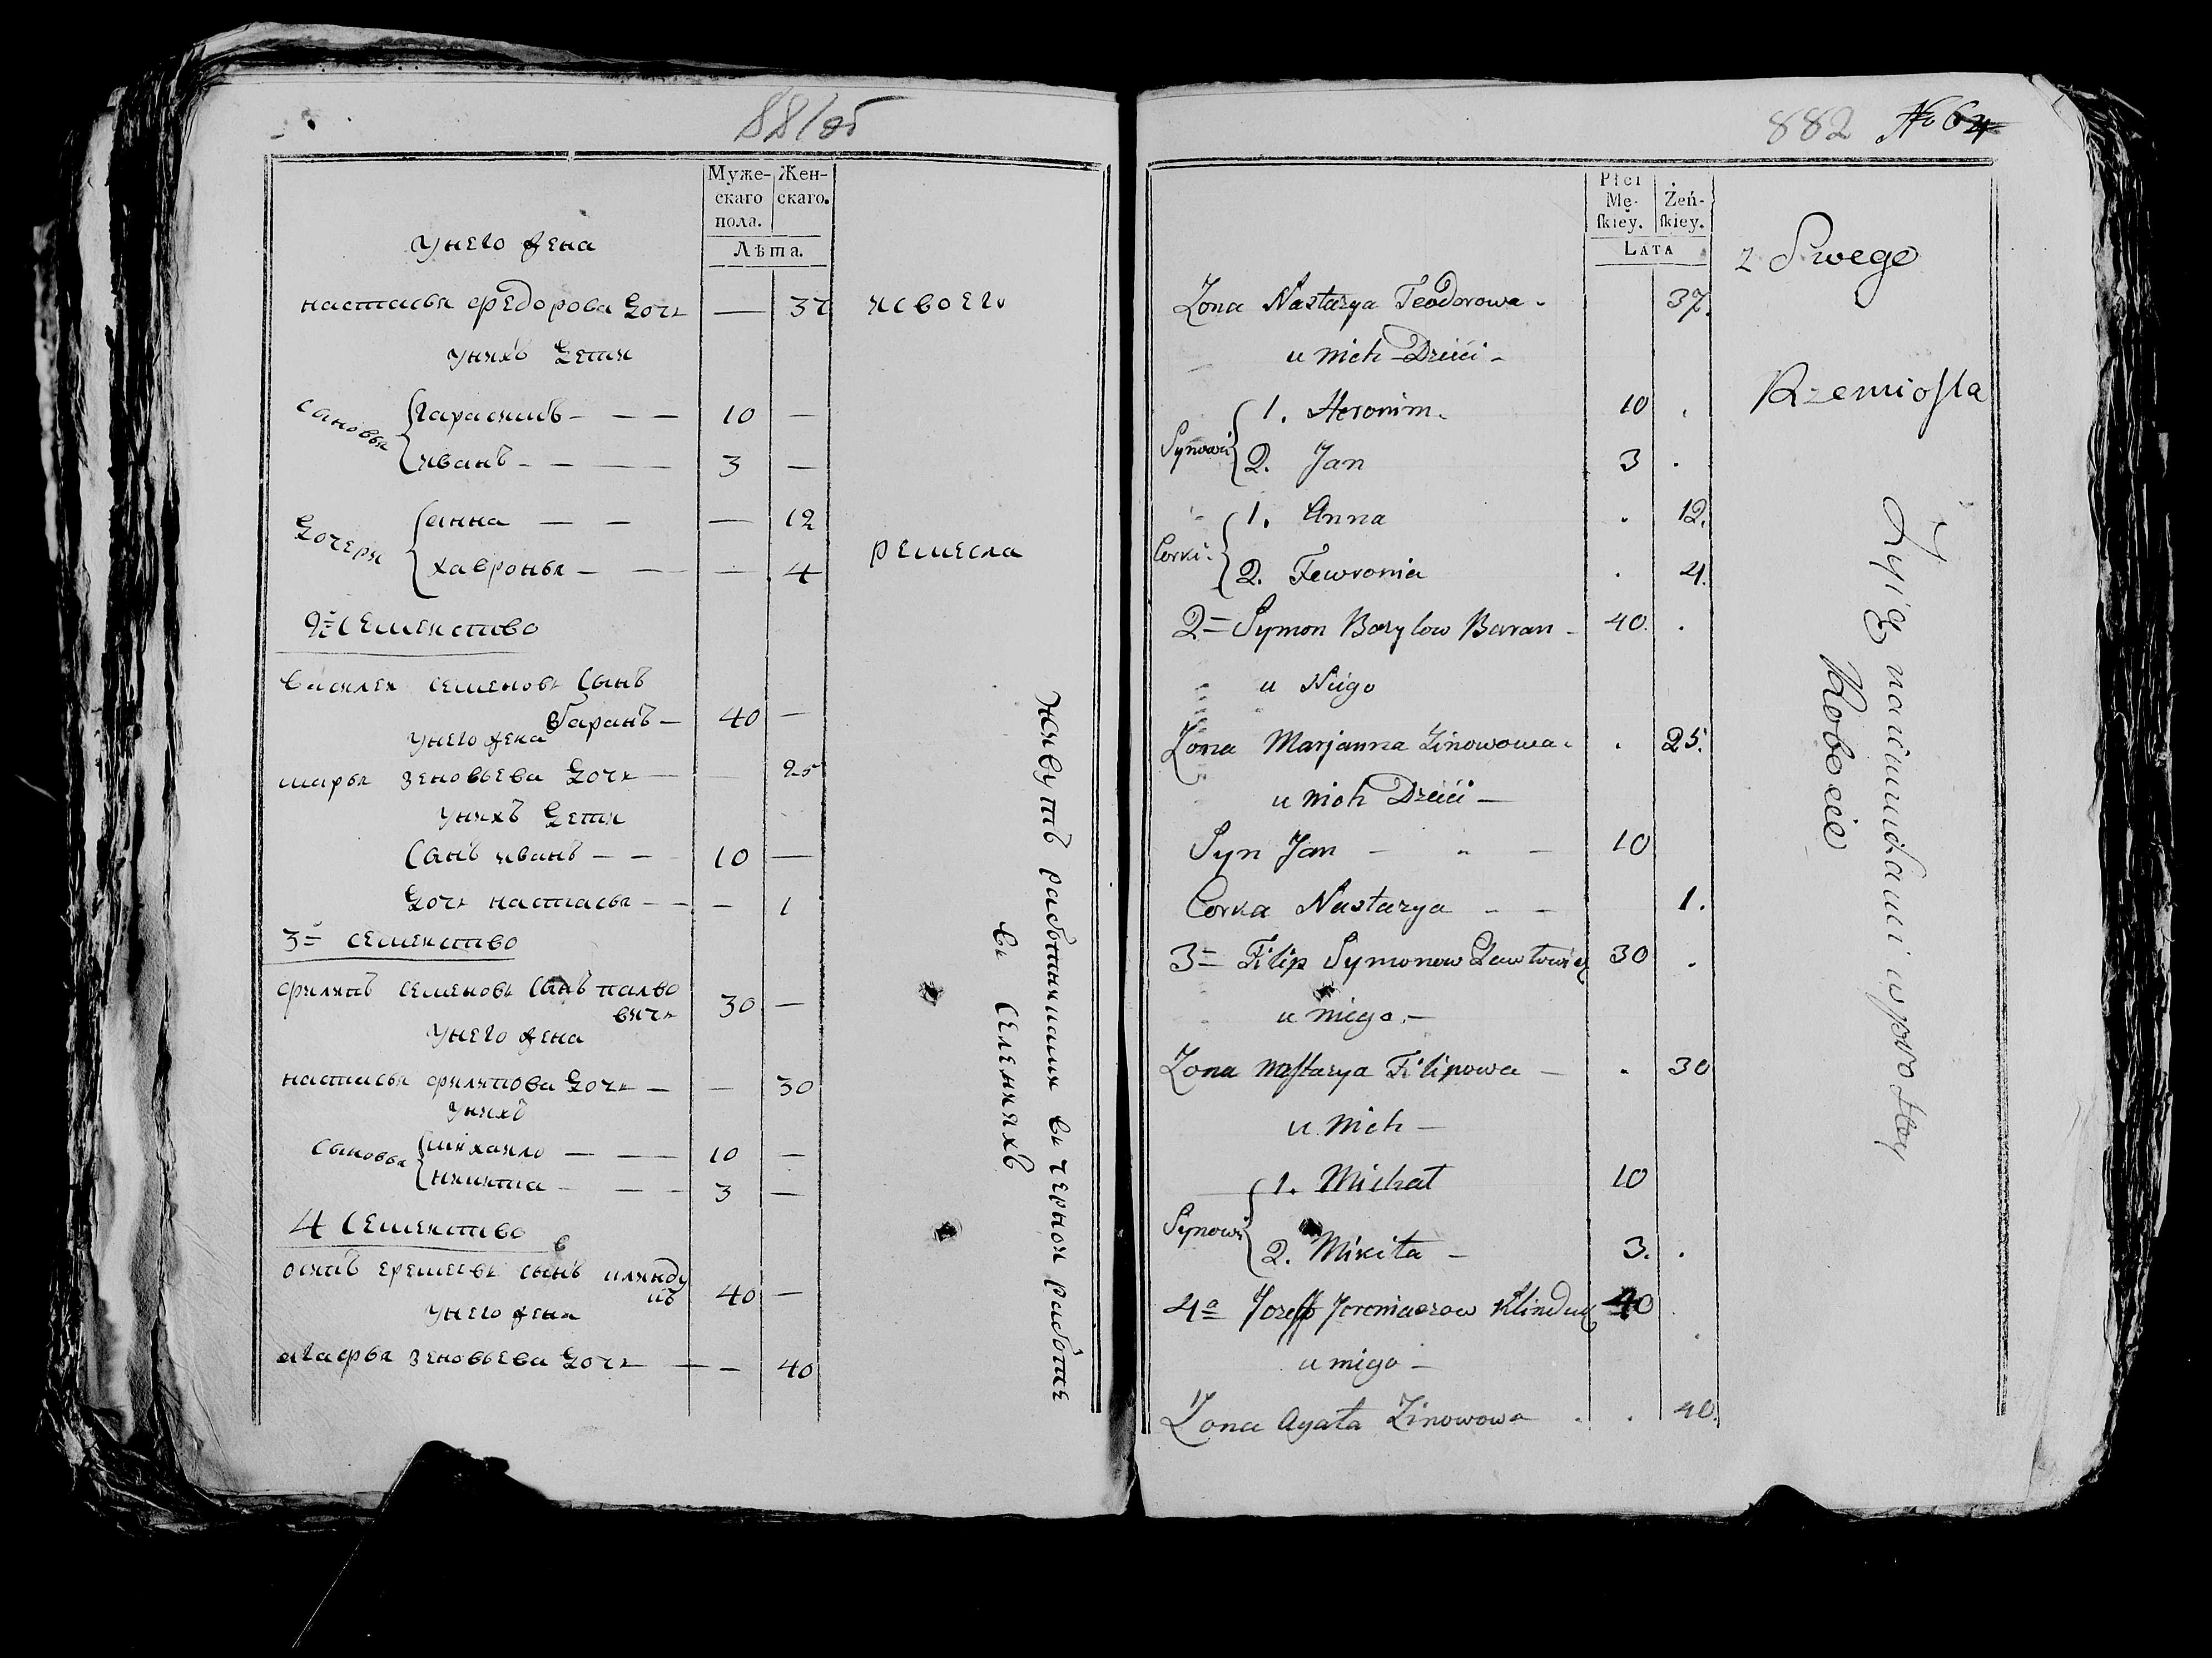 881об
Муже-
скаго
пола.
Жен-
скаго.
Лѣта.
унего жена
настасья федорова дочь — 37
унихъ дети
сановья
гараси­мъ — — — 10 —
иванъ — — — — 3 —
дочери
анна — — — 12
хавронья — — — 4
2е семейство
василей семеновъ сынъ
баранъ — 40 —
унего жена
марья зеновьева дочь — — 25
унихъ дети
санъ иванъ — — 10 —
дочь настасья — — — 1
3= семейство
филипъ семеновъ сынъ павло
вичь 30 —
унего жена
настасья филипова дочь — — 30
унихъ
сыновья
михаило — — — 10 —
никита — — — 3 —
4 семейство
осипъ еремеевъ сынъ
40 —
унего жена
агафья зеновьева дочь — — 40
исвоего
ремесла
живутъ работниками въ черной работе
въ селенияхъ
882 No 64
Płci
Mę-
ſkiey.
Żeń-
ſkiey.
LATA
Zona Nastazya Teodorowa 37.
u nich Dzieci –
Synowie
1. Heronim. 10 .
2. Jan 3 .
Corki.
1. Anna . 12.
2. Fewronia . 4.
2= Symon Bazylow Baran – 40. .
u Niego
Zona Marjanna Zinowowa . 25.
u nich Dzieci –
Syn Jan – " – 10
Corka Nastazya – – 1.
3= Filip Symonow 30 .
u niego. –
Zona Naſtazya Filipowa – . 30
u Nich –
Synowie
1. Michał 10
2. Mikita – 3. .
4o Jozeff Jeremiaszow 40
u nigo –
Zona Agata Zinowowa . . 40.
z Swego
Rzemioſla
Zyią naiimudami w prostey
Robocie